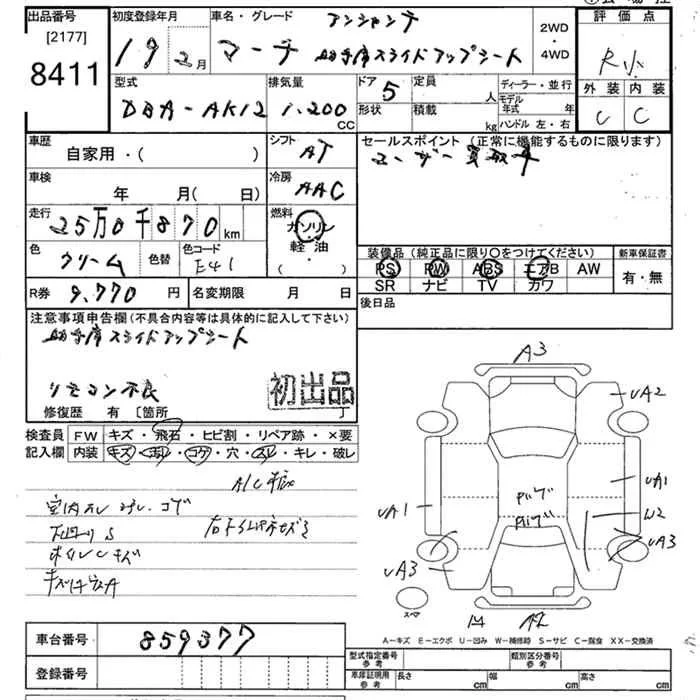 出品番号
[2177]
8411
初度登録年月
19年2月
車名・グレード
アンシャンテ
マーチ 助手席スライドアップシート
2WD
・
4WD
評価点
R小
外装 内装
C C
型式
DBA-AK12
排気量
1,200
CC
ドア
5
定員
人
形状
積載
kg
ディーラー・並行
モデル
年式 年
ハンドル 左・右
車歴
自家用・( )
シフト
AT
セールスポイント(正常に機能するものに限ります)
ユーザー買取車
車検
年 月( 日)
冷房
AAC
走行
25万0千870km
燃料
ガソリン
軽油
・( )
色
クリーム
色替
色コード
E41
装備品(純正品に限り○をつけてください)
PS PW ABS エアB AW
SR ナビ TV カワ
新車保証書
有・無
R券 9,770円
名変期限 月 日
後日品
注意事項申告欄(不具合内容等は具体的に記入して下さい)
助手席スライドアップシート
リモコン不良
初出品
修復歴 有 〔箇所 〕
検査員
記入欄
FW キズ・飛石・ヒビ割・リペア跡・×要
内装 キズ・汚れ・コゲ・穴・スレ・キレ・破レ
下回りS
ホイルCキズ
A3
UA2
UA1
UA1
W2
UA3
UA3
スペア
A-キズ E-エクボ U-凹み W-補修跡 S-サビ C-腐食 XX-交換済
車台番号 859377
登録番号
型式指定番号
参考
類別区分番号
参考
車庫証明用
参考
長さ cm 幅 cm 高さ cm